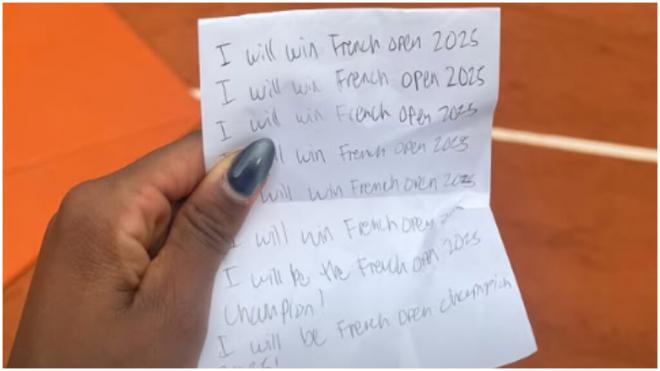 I will win French open 2025
I will win French open 2025
I will win French open 2025
I will win French open 2025
will win French open 2025
I will win French open
I will be the French open 2025
champion!
I will be French open champion